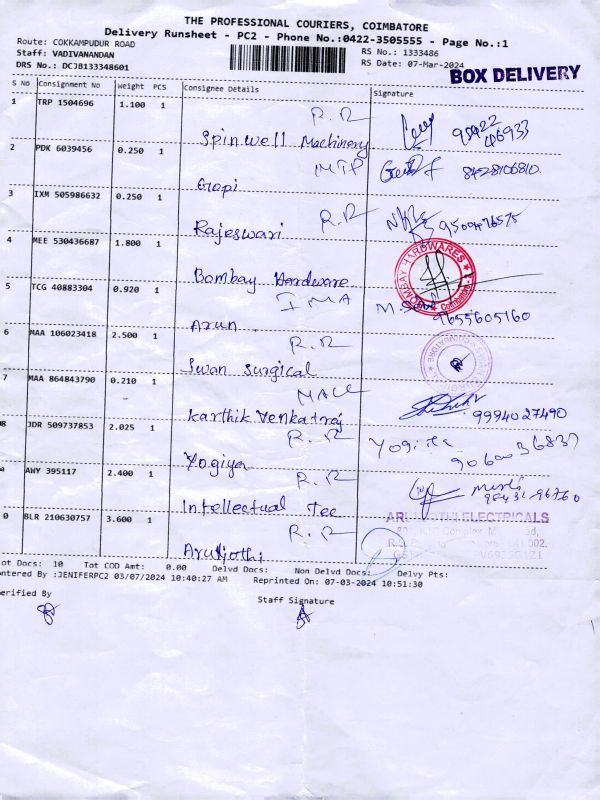 THE PROFESSIONAL COURIERS, COIMBATORE
Delivery Runsheet - PC2 - Phone No.:0422-3505555 - Page No.:1
Route: COKKAMPUDUR ROAD
Staff: VADIVANANDAN
DRS No.: DCJB133348601
RS No.: 1333486
RS Date: 07-Mar-2024
BOX DELIVERY
S No Consignment No Weight PCS Consignee Details Signature
1 TRP 1504696 1.100 1 R.R
Spinwell Machinery 98422
2 PDK 6039456 0.250 1 MTP
Gopi 8428106810.
3 IXM 505986632 0.250 1 R.R
Rajeswari 9500476575
4 MEE 530436687 1.800 1
Bombay Hardware
BOMBAY HARDWARES
Coimbatore
5 TCG 40883304 0.920 1 IMA
Arun 9655605160
6 MAA 106023418 2.500 1 R.R
Swan Surgical
7 MAA 864843790 0.210 1 MALL
Karthik Venkatraj 9994027490
8 JDR 509737853 2.025 1 R.R
Yogiya
AWY 395117 2.400 1 R.R
Intellectual Tec
0 BLR 210630757 3.600 1 R.R
Arutjothi
ELECTRICALS
ot Docs: 10 Tot COD Amt: 0.00 Delvd Docs: Non Delvd Docs: Delvy Pts:
ntered By :JENIFERPC2 03/07/2024 10:40:27 AM Reprinted On: 07-03-2024 10:51:30
erified By
Staff Signature